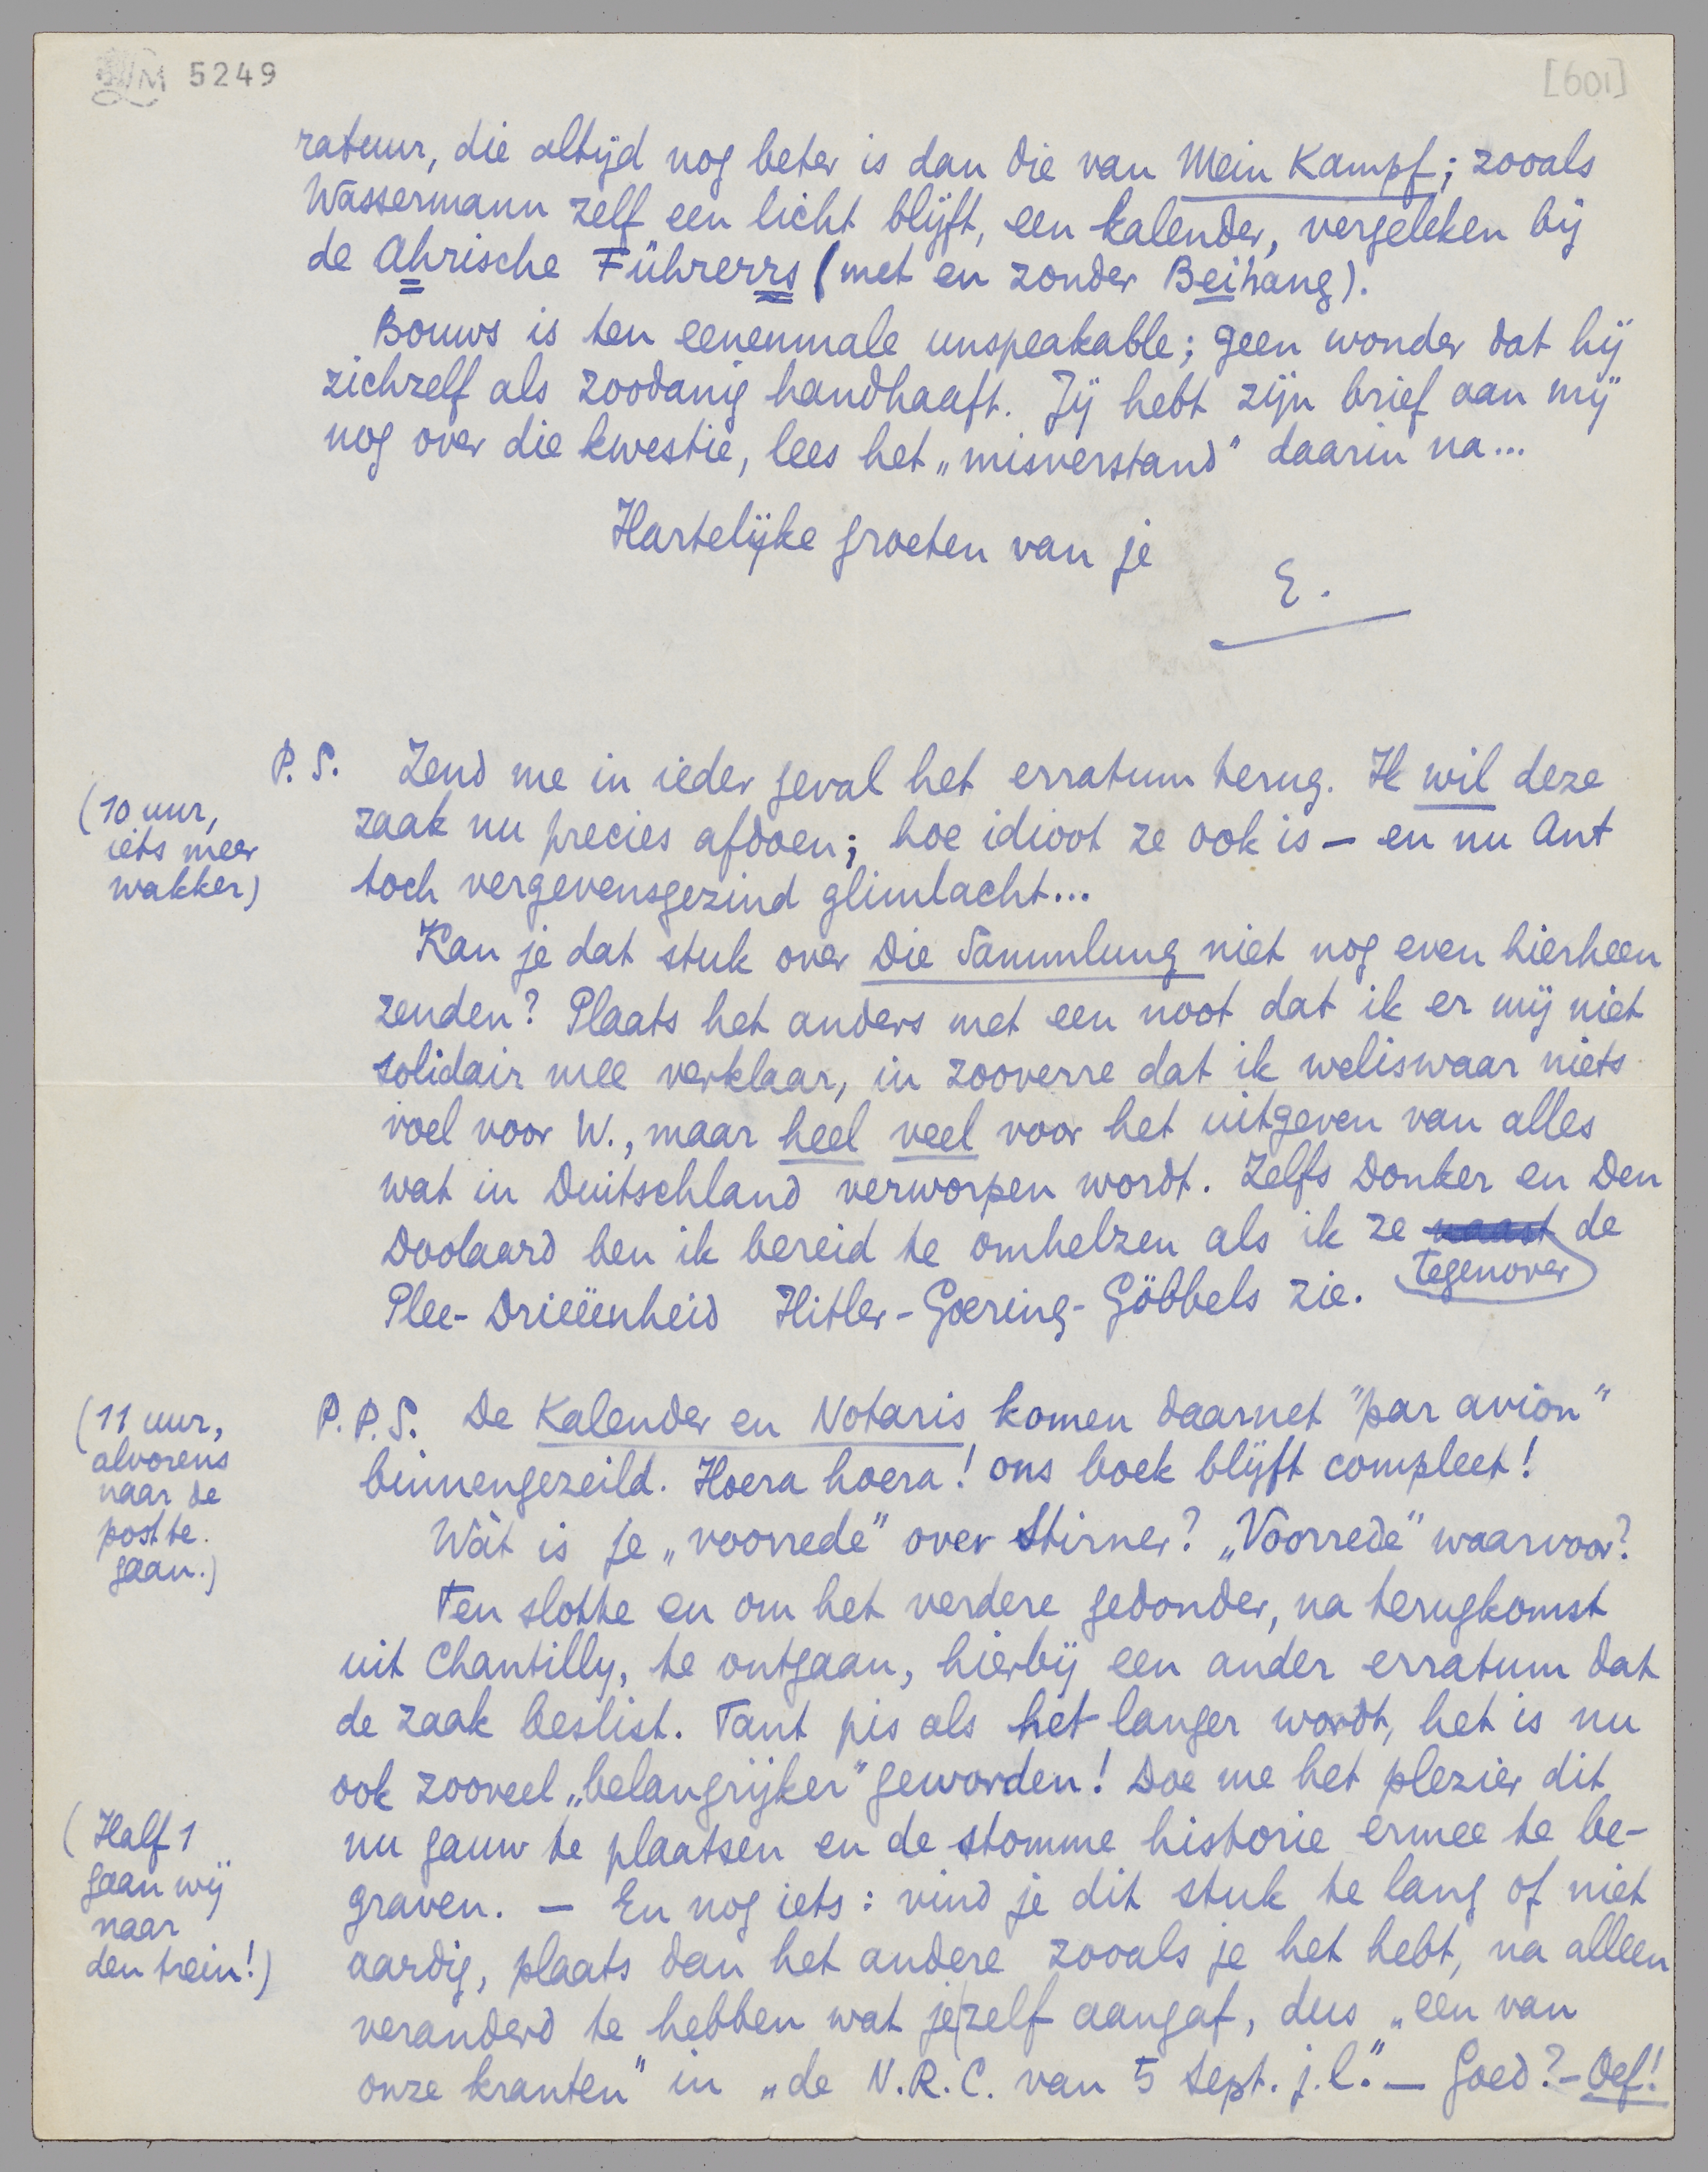 LM 5249
[601]
ratuur, die altijd nog beter is dan die van Mein Kampf; zooals
Wassermann zelf een licht blijft, een kalender, vergeleken bij
de Ahrische Führerrs (met en zonder Beihang).
Bouws is ten eenenmale unspeakable; geen wonder dat hij
zichzelf als zoodanig handhaaft. Jij hebt zijn brief aan mij
nog over die kwestie, lees het „misverstand" daarin na...
Hartelijke groeten van je
E.
P.S. Zend me in ieder geval het erratum terug. Ik wil deze
(10 uur,
iets meer
wakker)
zaak nu precies afdoen; hoe idioot ze ook is — en nu Ant
toch vergevensgezind glimlacht...
Kan je dat stuk over Die Sammlung niet nog even hierheen
zenden? Plaats het anders met een noot dat ik er mij niet
solidair mee verklaar, in zooverre dat ik weliswaar niets
voel voor W., maar heel veel voor het uitgeven van alles
wat in Duitschland verworpen wordt. Zelfs Donker en Den
Doolaard ben ik bereid te omhelzen als ik ze naast de
tegenover
Plee-Drieëenheid Hitler-Goering-Göbbels zie.
(11 uur,
alvorens
naar de
post te
gaan.)
P.P.S. De Kalender en Notaris komen daarnet "par avion"
binnengezeild. Hoera hoera! ons boek blijft compleet!
Wàt is je „voorrede" over Stirner? „Voorrede" waarvoor?
Ten slotte en om het verdere gedonder, na terugkomst
uit Chantilly, te ontgaan, hierbij een ander erratum dat
de zaak beslist. Tant pis als het langer wordt, het is nu
ook zooveel „belangrijker" geworden! Doe me het plezier dit
(Half 1
gaan wij
naar
den trein!)
nu gauw te plaatsen en de stomme historie ermee te be-
graven. — En nog iets: vind je dit stuk te lang of niet
aardig, plaats dan het andere zooals je het hebt, na alleen
veranderd te hebben wat je zelf aangaf, dus „een van
onze kranten" in „de N.R.C. van 5 Sept. j.l." — Goed? - Oef!